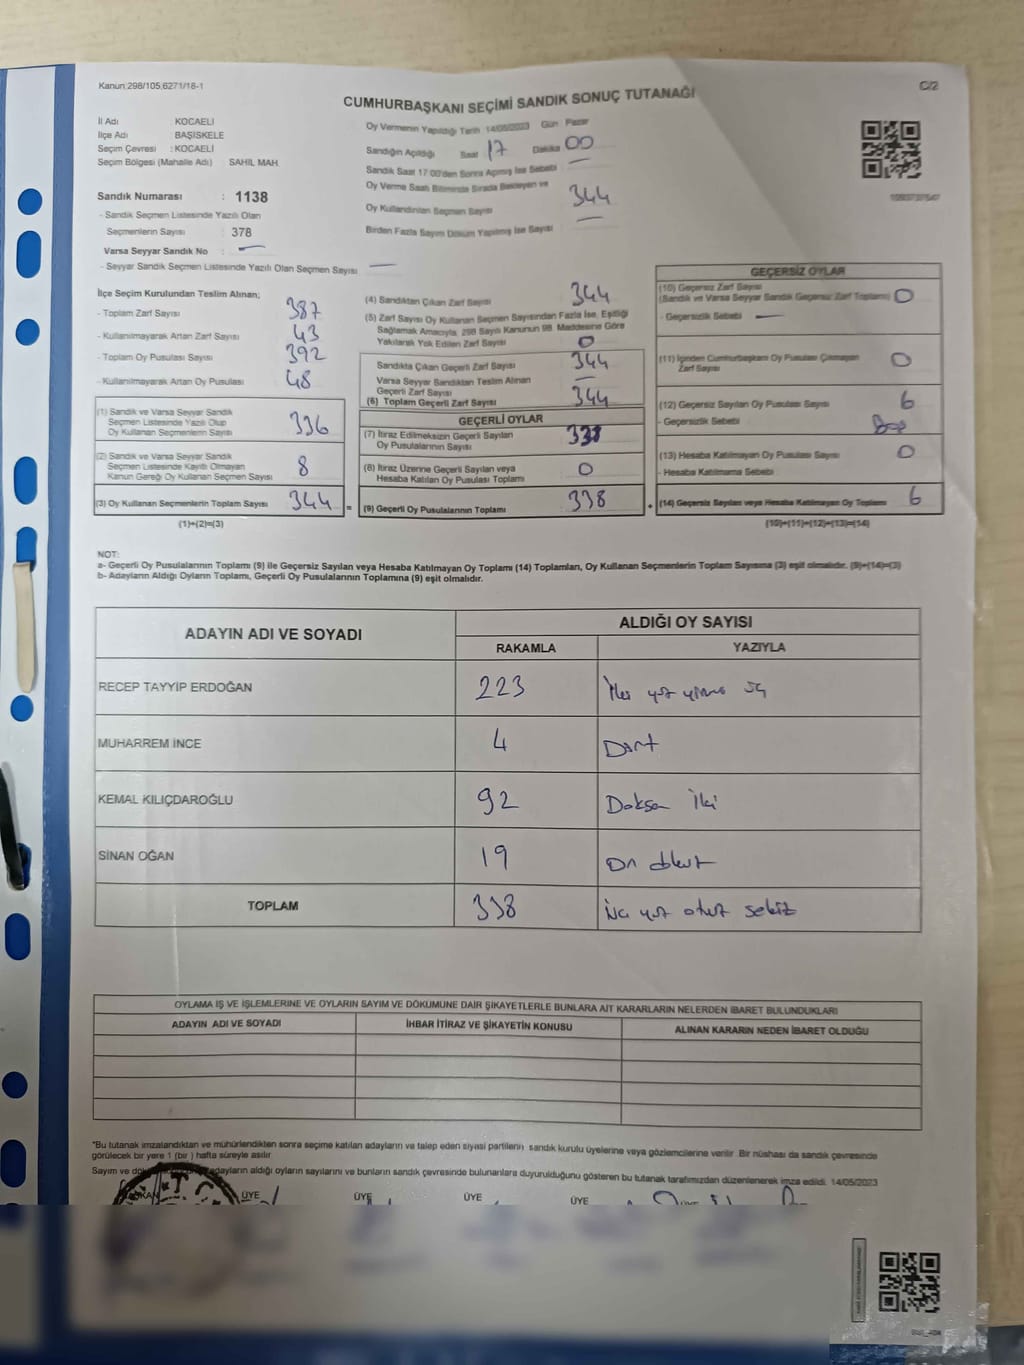 Kanun:298/105,6271/16-1
C/2
CUMHURBAŞKANI SEÇİMİ SANDIK SONUÇ TUTANAĞI
İl Adı KOCAELİ
İlçe Adı BAŞİSKELE
Seçim Çevresi : KOCAELİ
Seçim Bölgesi (Mahalle Adı) SAHİL MAH.
Sandık Numarası : 1138
- Sandık Seçmen Listesinde Yazılı Olan
Seçmenlerin Sayısı : 378
Varsa Seyyar Sandık No : —
- Seyyar Sandık Seçmen Listesinde Yazılı Olan Seçmen Sayısı —
Oy Vermenin Yapıldığı Tarih 14/05/2023 Gün Pazar
Sandığın Açıldığı Saat 17 Dakika 00
Sandık Saat 17:00'den Sonra Açılmış İse Sebebi —
Oy Verme Saati Bitiminde Sırada Bekleyen ve
Oy Kullandırılan Seçmen Sayısı 344
Birden Fazla Sayım Döküm Yapılmış İse Sayısı —
İlçe Seçim Kurulundan Teslim Alınan;
- Toplam Zarf Sayısı 387
- Kullanılmayarak Artan Zarf Sayısı 43
- Toplam Oy Pusulası Sayısı 392
- Kullanılmayarak Artan Oy Pusulası 48
(1) Sandık ve Varsa Seyyar Sandık
Seçmen Listesinde Yazılı Olup
Oy Kullanan Seçmenlerin Sayısı 336
(2) Sandık ve Varsa Seyyar Sandık
Seçmen Listesinde Kayıtlı Olmayan
Kanun Gereği Oy Kullanan Seçmen Sayısı 8
(3) Oy Kullanan Seçmenlerin Toplam Sayısı 344 =
(1)+(2)=(3)
(4) Sandıktan Çıkan Zarf Sayısı 344
(5) Zarf Sayısı Oy Kullanan Seçmen Sayısından Fazla İse, Eşitliği
Sağlamak Amacıyla, 298 Sayılı Kanunun 98. Maddesine Göre
Yakılarak Yok Edilen Zarf Sayısı 0
Sandıkta Çıkan Geçerli Zarf Sayısı 344
Varsa Seyyar Sandıktan Teslim Alınan
Geçerli Zarf Sayısı —
(6) Toplam Geçerli Zarf Sayısı 344
GEÇERLİ OYLAR
(7) İtiraz Edilmeksizin Geçerli Sayılan
Oy Pusulalarının Sayısı 338
(8) İtiraz Üzerine Geçerli Sayılan veya
Hesaba Katılan Oy Pusulası Toplamı 0
(9) Geçerli Oy Pusulalarının Toplamı 338 +
GEÇERSİZ OYLAR
(10) Geçersiz Zarf Sayısı
(Sandık ve Varsa Seyyar Sandık Geçersiz Zarf Toplamı) 0
- Geçersizlik Sebebi —
(11) İçinden Cumhurbaşkanı Oy Pusulası Çıkmayan
Zarf Sayısı 0
(12) Geçersiz Sayılan Oy Pusulası Sayısı 6
- Geçersizlik Sebebi
(13) Hesaba Katılmayan Oy Pusulası Sayısı 0
- Hesaba Katılmama Sebebi
(14) Geçersiz Sayılan veya Hesaba Katılmayan Oy Toplamı 6
(10)+(11)+(12)+(13)=(14)
NOT:
a- Geçerli Oy Pusulalarının Toplamı (9) ile Geçersiz Sayılan veya Hesaba Katılmayan Oy Toplamı (14) Toplamları, Oy Kullanan Seçmenlerin Toplam Sayısına (3) eşit olmalıdır. (9)+(14)=(3)
b- Adayların Aldığı Oyların Toplamı, Geçerli Oy Pusulalarının Toplamına (9) eşit olmalıdır.
ADAYIN ADI VE SOYADI
ALDIĞI OY SAYISI
RAKAMLA YAZIYLA
RECEP TAYYİP ERDOĞAN 223 İki yüz yirmi üç
MUHARREM İNCE 4 Dört
KEMAL KILIÇDAROĞLU 92 Doksan İki
SİNAN OĞAN 19 On dokuz
TOPLAM 338 yüz otuz sekiz
OYLAMA İŞ VE İŞLEMLERİNE VE OYLARIN SAYIM VE DÖKÜMÜNE DAİR ŞİKAYETLERLE BUNLARA AİT KARARLARIN NELERDEN İBARET BULUNDUKLARI
ADAYIN ADI VE SOYADI İHBAR İTİRAZ VE ŞİKAYETİN KONUSU ALINAN KARARIN NEDEN İBARET OLDUĞU
*Bu tutanak imzalandıktan ve mühürlendikten sonra seçime katılan adayların ve talep eden siyasi partilerin sandık kurulu üyelerine veya gözlemcilerine verilir. Bir nüshası da sandık çevresinde
görülecek bir yere 1 (bir ) hafta süreyle asılır.
Sayım ve adayların aldığı oyların sayılarını ve bunların sandık çevresinde bulunanlara duyurulduğunu gösteren bu tutanak tarafımızdan düzenlenerek imza edildi. 14/05/2023
ÜYE ÜYE ÜYE ÜYE